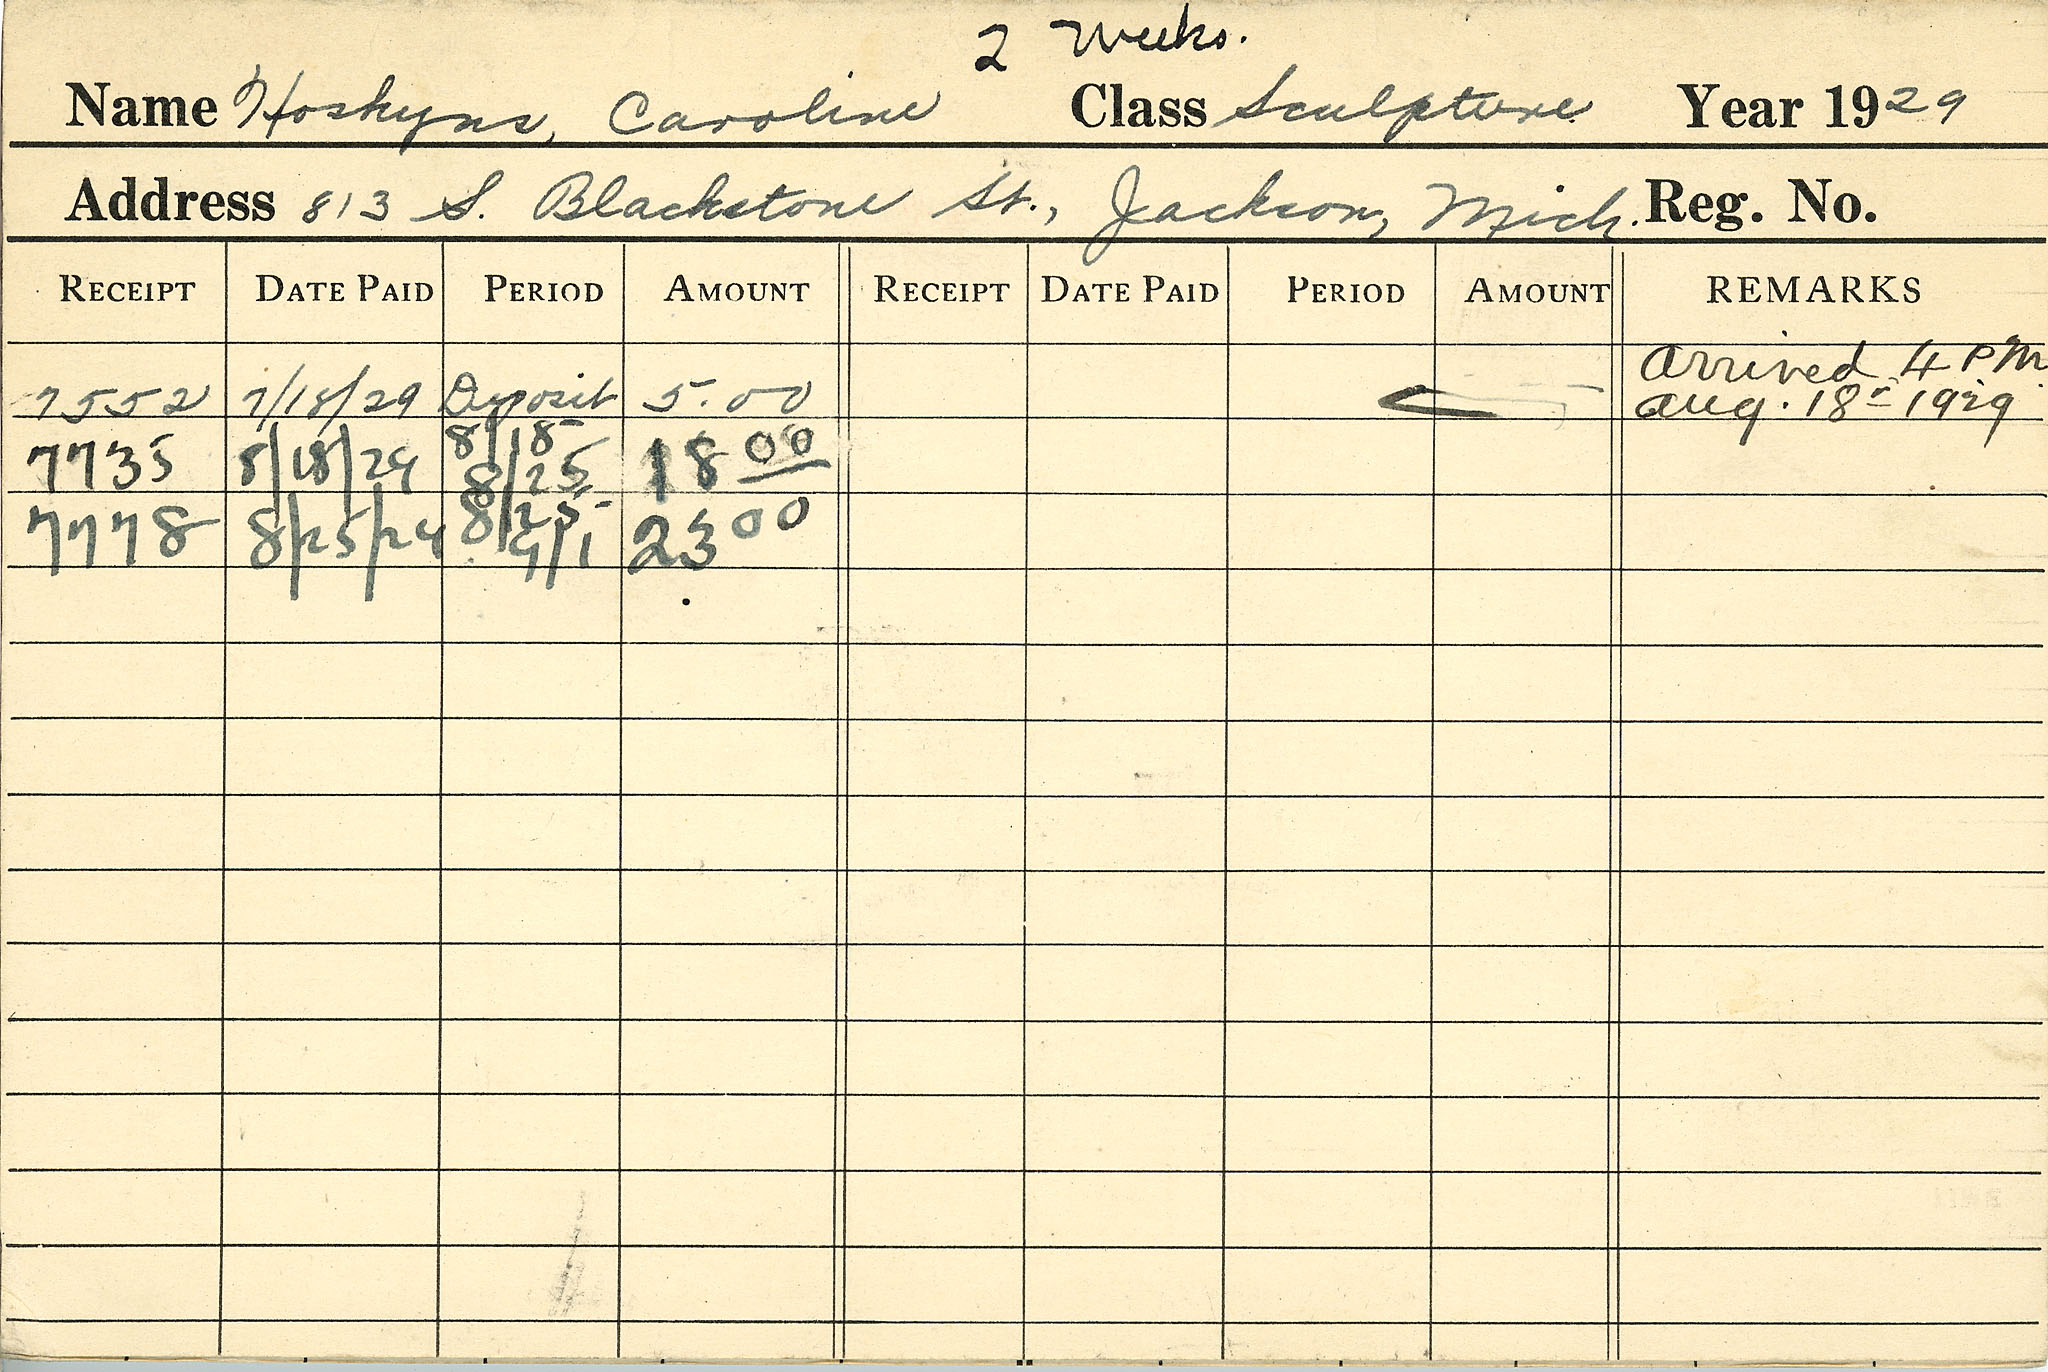 2 Weeks.
Name Hoskyns, Caroline Class Sculpture Year 1929
Address 813 S. Blackstone St., Jackson, Mich. Reg. No.
RECEIPT DATE PAID PERIOD AMOUNT RECEIPT DATE PAID PERIOD AMOUNT REMARKS
Arrived 4 PM
7552 7/18/29 Deposit 5.00 Aug. 18th 1929
8/18
7735 8/18/29 8/25 18 00
8/25
7778 8/25/29 9/1 23 00